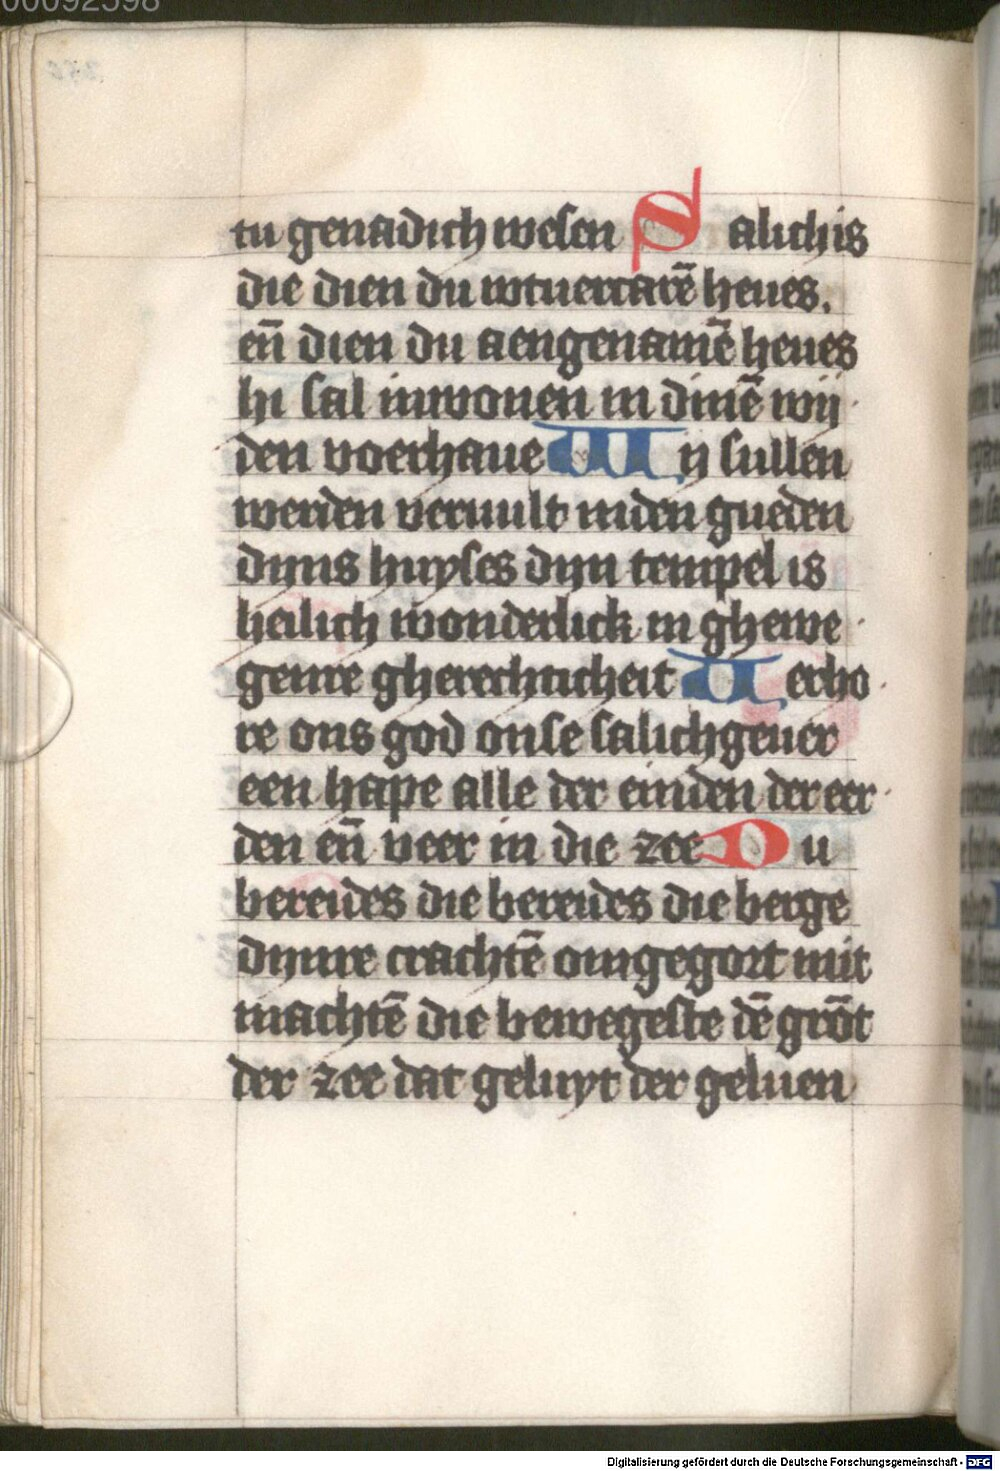 00092598
tu genadich wesen Salich is
die dien du wtuercarē heues.
eñ dien du aengenamē heues
hi sal inwonen in dinē wij
den voerhaue Wij sullen
werden veruult inden gueden
dijns huyses dijn tempel is
heilich wonderlick in ghewe
genre gherechticheit Verho
re ons god onse salichgeuer
een hape alle der einden der eer
den eñ veer in die zee Du
bereides die bereides die berge
dijnre crachtē omgegort mit
machtē die bewegeste dē grōt
der zee dat geluyt der geluen
Digitalisierung gefördert durch die Deutsche Forschungsgemeinschaft - DFG